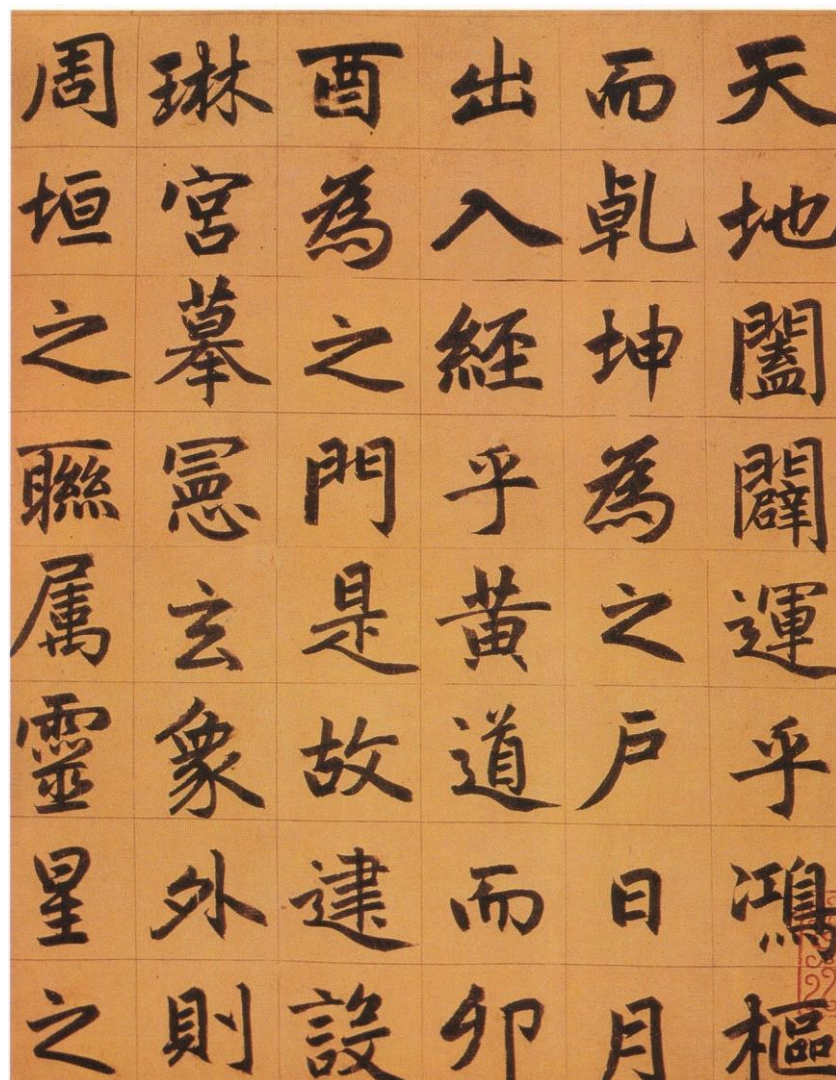 天地闔闢運乎鴻樞
而乹坤為之户日月
出入經乎黄道而卯
酉為之門是故建設
琳宮摹憲玄象外則
周垣之聮属靈星之